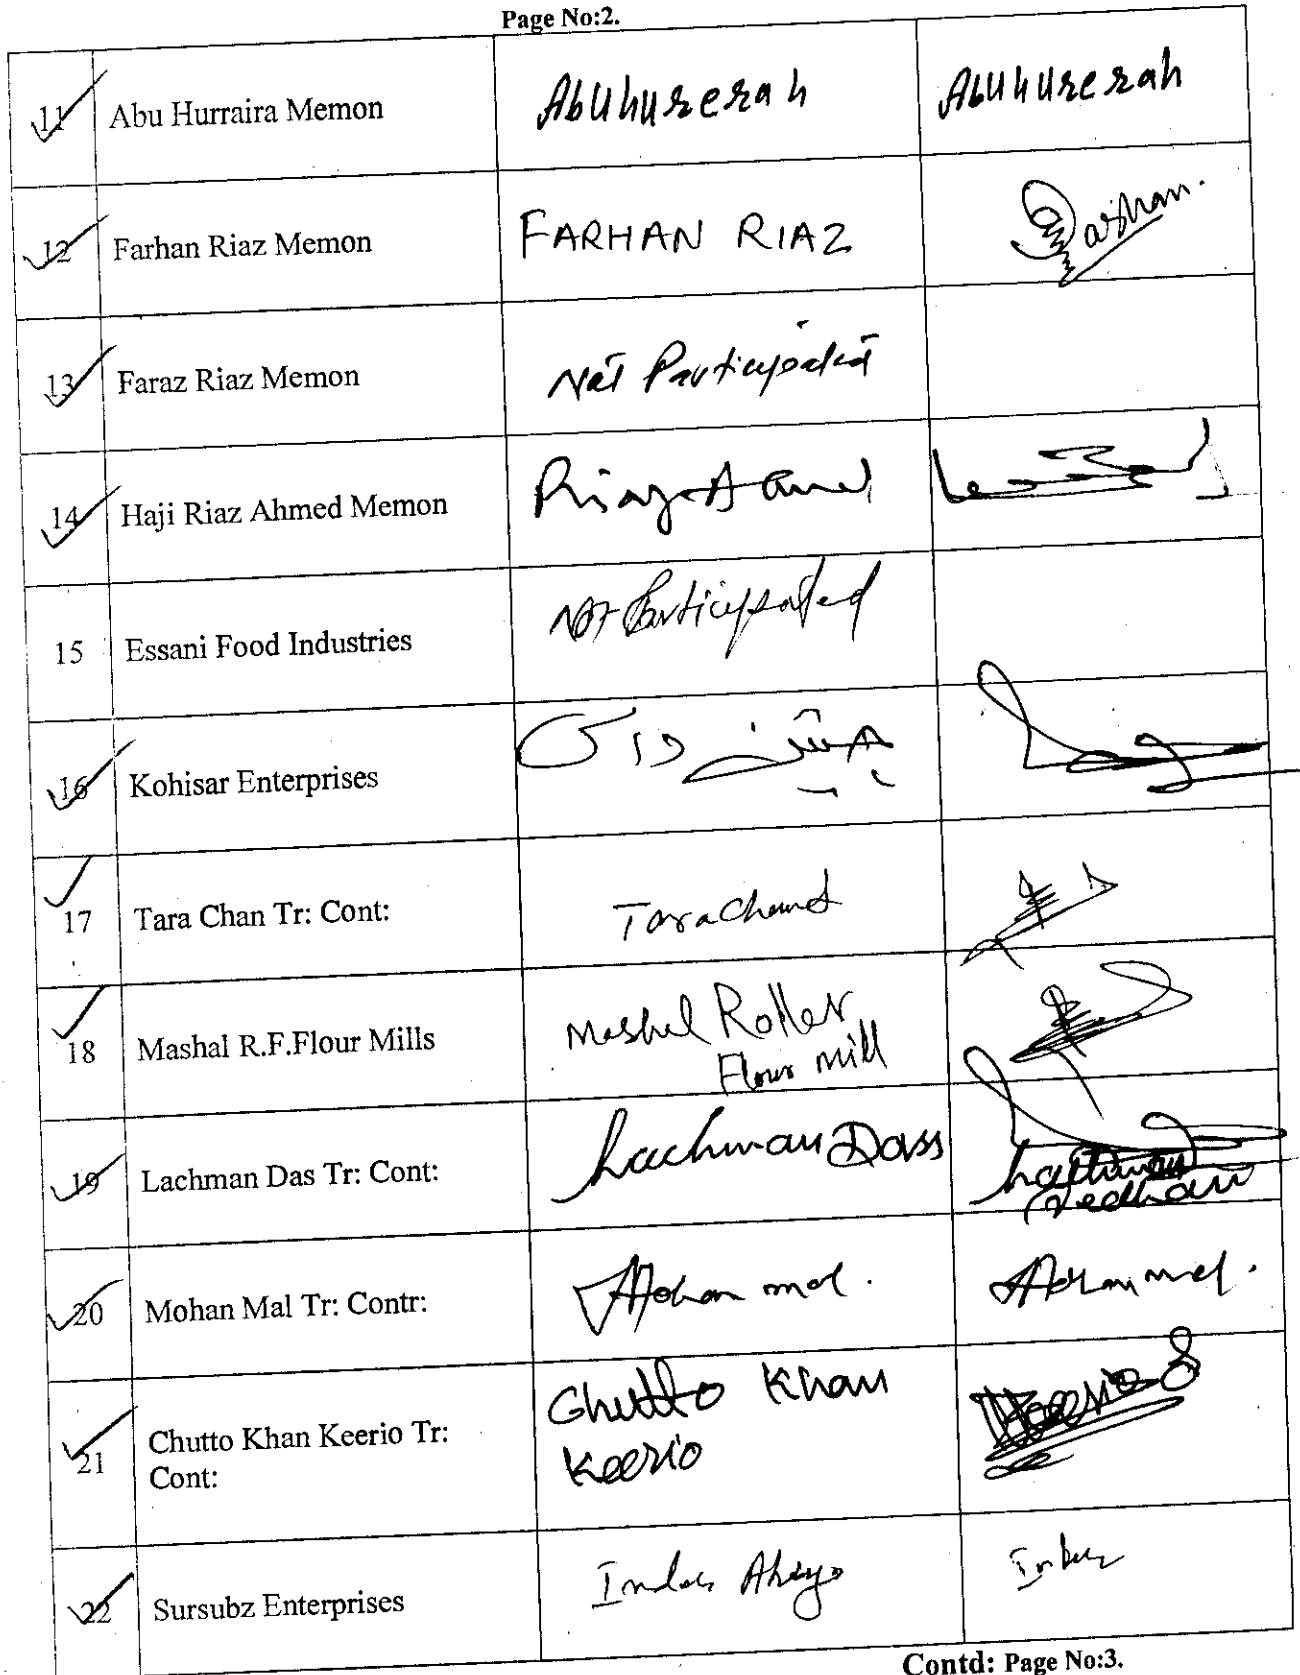 Page No:2.
11 Abu Hurraira Memon Abuhurerah Abuhurerah
12 Farhan Riaz Memon FARHAN RIAZ Farhan.
13 Faraz Riaz Memon Not Participated
14 Haji Riaz Ahmed Memon Riaz Ahmed
15 Essani Food Industries Not Participated
16 Kohisar Enterprises
17 Tara Chan Tr: Cont: Tarachand
18 Mashal R.F.Flour Mills Mashal Roller
Flour Mill
19 Lachman Das Tr: Cont: Lachman Dass
20 Mohan Mal Tr: Contr: Mohan mal. Mohan mal.
21 Chutto Khan Keerio Tr: Chutto Khan Keerio
Cont: Keerio
22 Sursubz Enterprises
Contd: Page No:3.